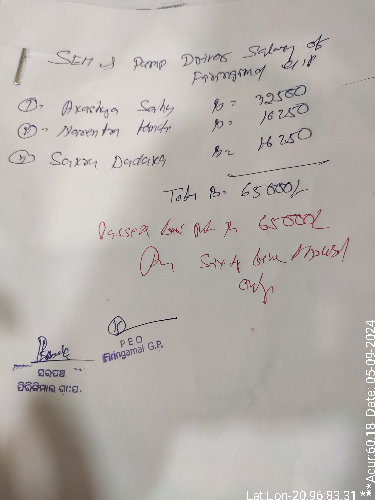 SEM & Pump Driver Salary of
Firingamal G.P
① Akshya Sahu ₨= 32500
② Narendra ₨= 16250
③ Saxra Dadaka ₨= 16250
Total ₨= 65000/-
Passed for ₨ 65000/-
Sixty five thousand
only
ସରପଞ୍ଚ
ଫିରିଙ୍ଗମାଲ ଗ୍ରା.ପଂ.
P E O
Firingamal G.P.
Lat Lon-20.96:83.31 ***Acur:60.18 Date: 05-09-2024